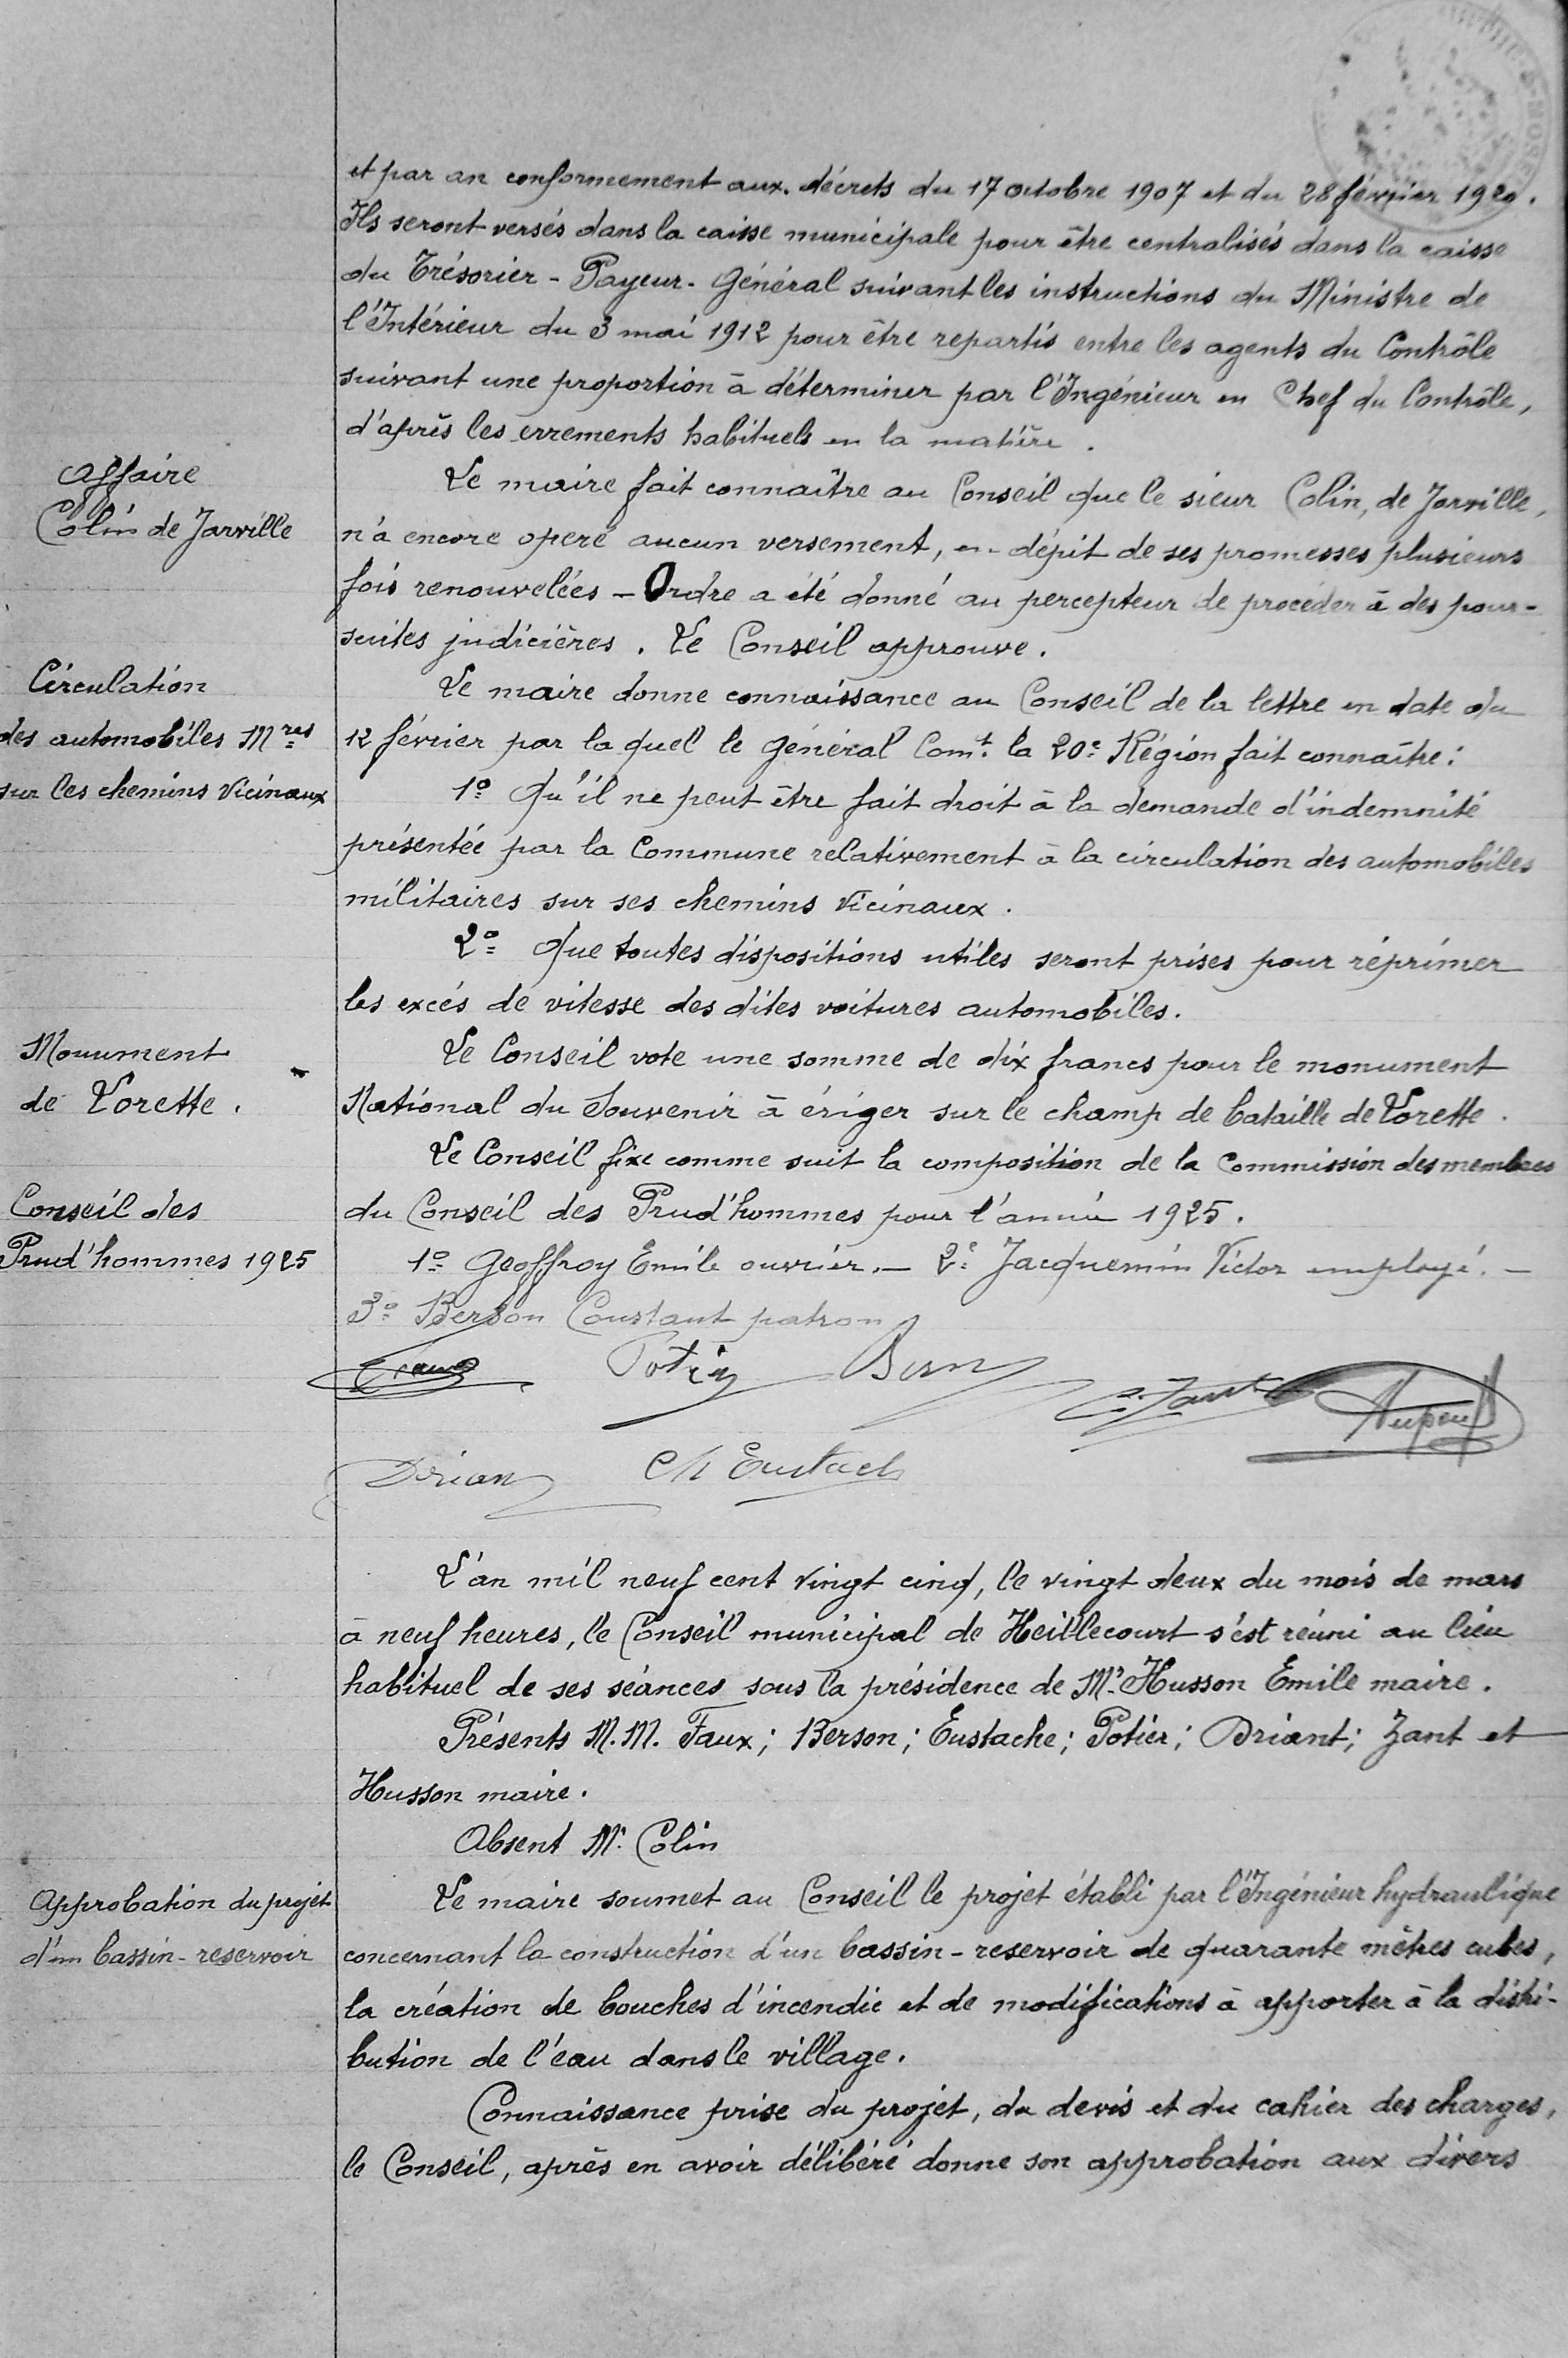 et par an conformement aux décrets du 17 octobre 1907 et du 28 février 1920.
Ils seront versés dans la caisse municipale pour être centralisés dans la caisse
du Trésorier - Payeur - Général suivant les instructions du Ministre de
l'Intérieur du 3 mai 1912 pour être repartis entre les agents du Contrôle
suivant une proportion à déterminer par l'Ingénieur en Chef du Contrôle,
d'après les errements habituels en la matière.
Affaire
Colin de Jarville
Le maire fait connaître au Conseil que le sieur Colin, de Jarville,
n'a encore operé aucun versement, en dépit de ses promesses plusieurs
fois renouvelées - Ordre a été donné au percepteur de procéder à des pour-
suites judicières. Le Conseil approuve.
Circulation
des automobiles Mres
sur les chemins vicinaux
Le maire donne connaissance au Conseil de la lettre en date du
12 février par la quel le Général Comt la 20e Région fait connaître :
1o Qu'il ne peut être fait droit à la demande d'indemnité
présentée par la Commune relativement à la circulation des automobiles
militaires sur ses chemins vicinaux.
2o Que toutes dispositions utiles seront prises pour réprimer
les excés de vitesse des dites voitures automobiles.
Monument
de Lorette.
Le Conseil vote une somme de dix francs pour le monument
National du Souvenir à ériger sur le champ de bataille de Lorette.
Conseil des
Prud'hommes 1925
Le Conseil fixe comme suit la composition de la Commission des membres
du Conseil des Prud'hommes pour l'année 1925.
1o Geoffroy Emile ouvrier. - 2o Jacquemin Victor employé. -
3o Berson Constant patron
Potier
Drian Ch Eustache
L'an mil neuf cent vingt cinq, le vingt deux du mois de mars
à neuf heures, le Conseil municipal de Heillecourt s'est réuni au lieu
habituel de ses séances sous la présidence de Mr Husson Emile maire.
Présents M.M. Faux; Berson; Eustache; Potier; Driant; Zant et
Husson maire.
Absent Mr Colin
Approbation du projet
d'un bassin-reservoir
Le maire soumet au Conseil le projet établi par l'Ingénieur hydraulique
concernant la construction d'un bassin-reservoir de quarante mètres cubes,
la création de bouches d'incendie et de modifications à apporter à la distri-
bution de l'eau dans le village.
Connaissance prise du projet, du devis et du cahier des charges,
le Conseil, après en avoir délibéré donne son approbation aux divers